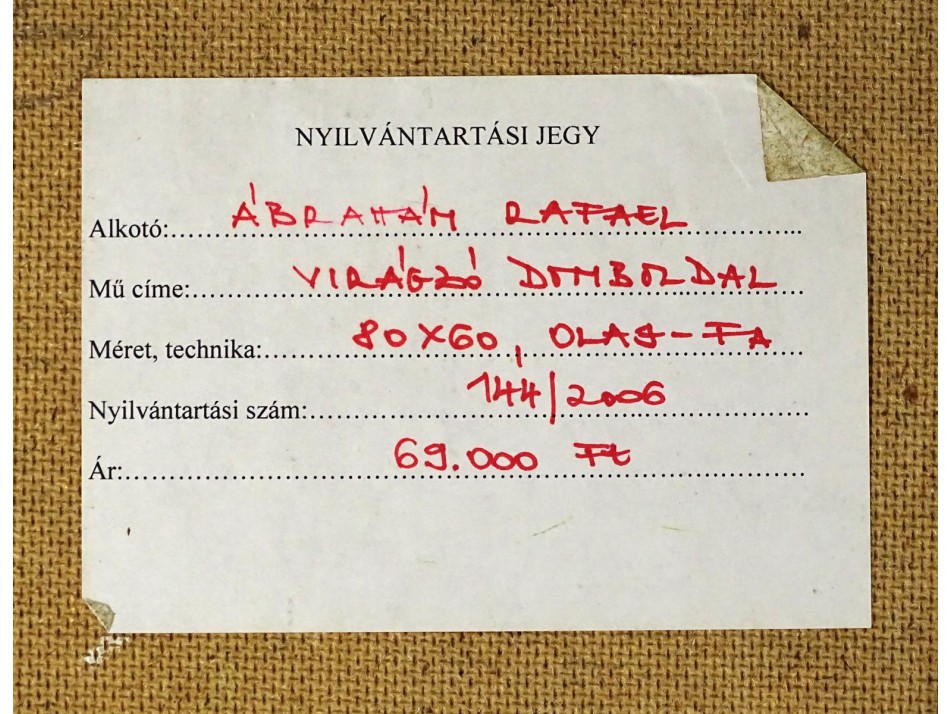 NYILVÁNTARTÁSI JEGY
Alkotó: ÁBRAHÁM RAFAEL
Mű címe: VIRÁGZÓ DOMBOLDAL
Méret, technika: 80X60, OLAJ-FA
Nyilvántartási szám: 144/2006
Ár: 69.000 Ft